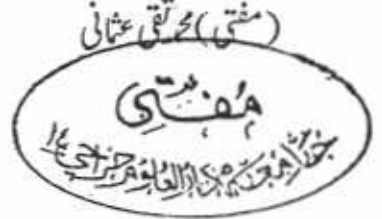 (مفتی) محمد تقی عثمانی
مُفتی
جامعہ دارالعلوم کراچی ۱۴